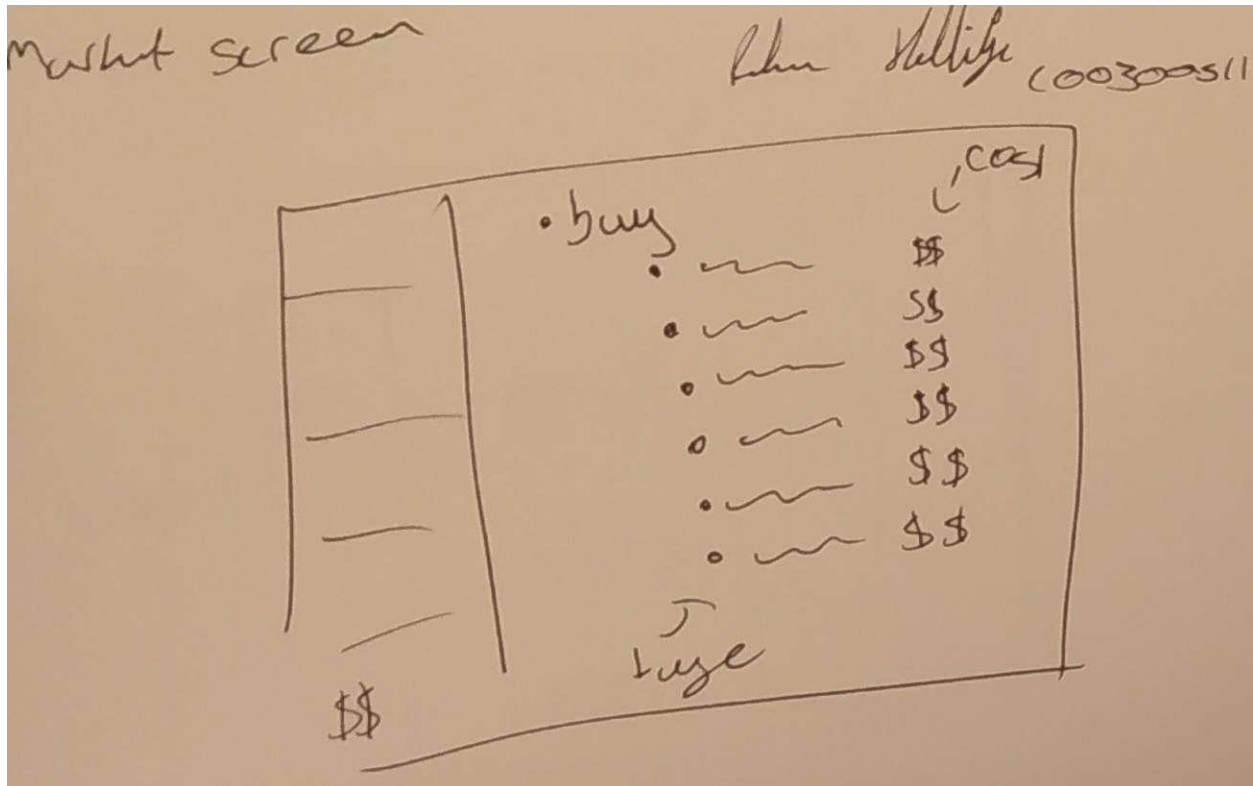 Market screen
100300511
cost
• buy
• $$
• $$
• $$
• $$
• $$
• $$
$$